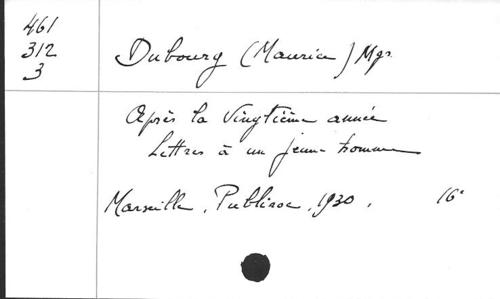 461
312
3
Dubourg (Maurice) Mgr
Après la vingtième année
Lettres à un jeune homme
Marseille, Publiroc, 1930. 16°